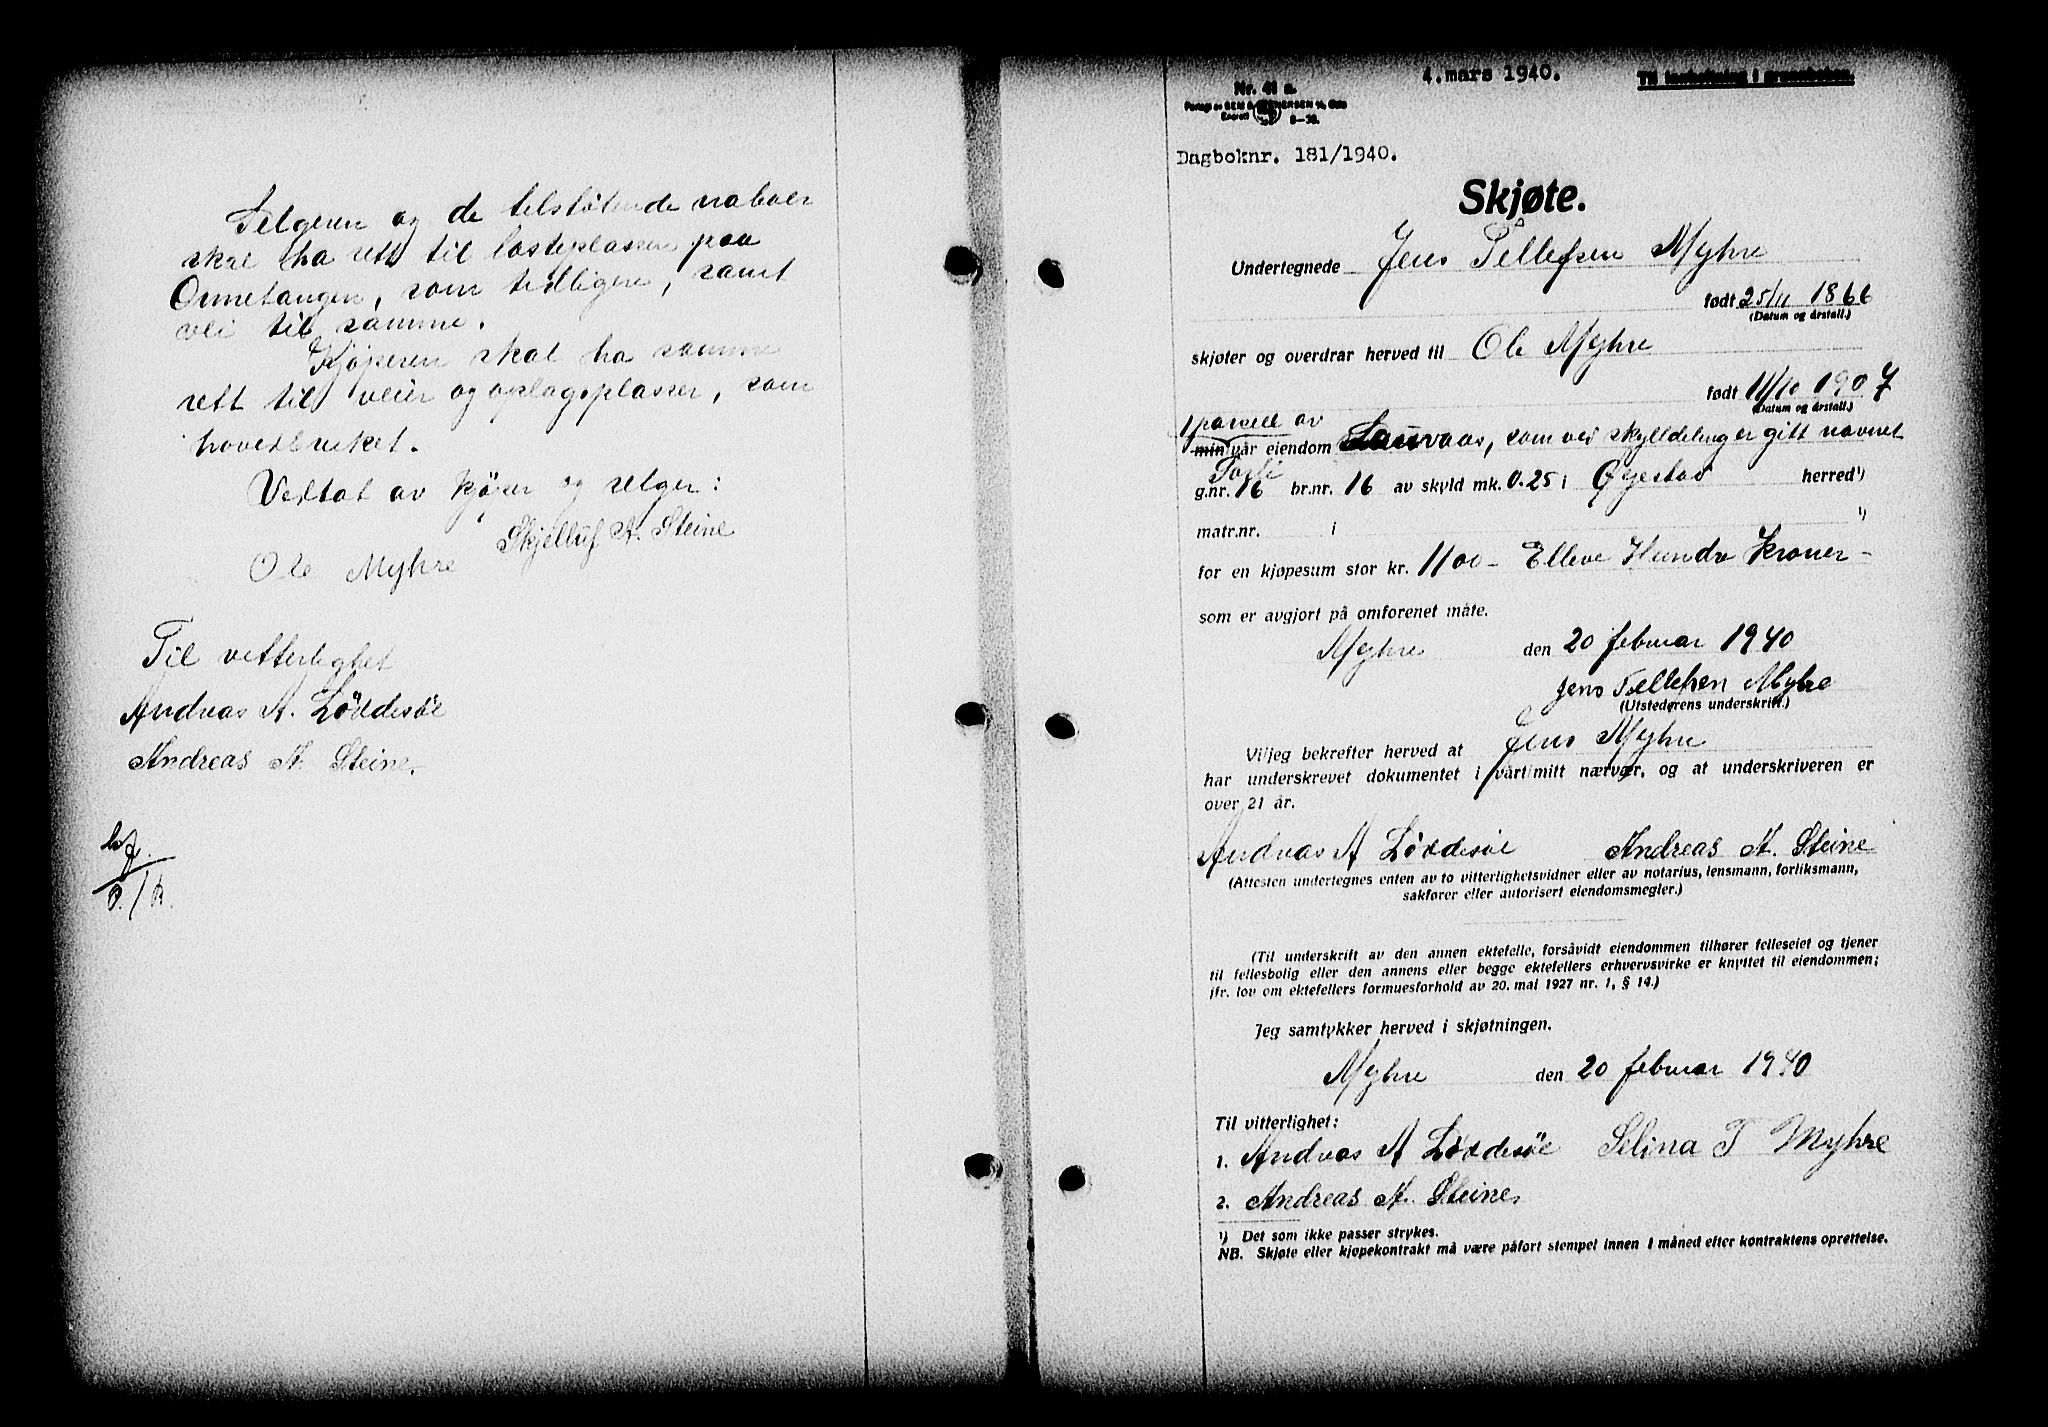 Selgeren og de tilstøtende naboer
skal ha rett til lasteplassen paa
Onnetangen, som tidligere, samt
vei til samme.
Kjøperen skal ha samme
rett til veier og oplagsplasser, som
hovedbruket.
Vedtat av kjøper og selger:
Skjelluf A. Steine
Ole Myhre
Til vitterlighet
Andreas A. Løddesøl
Andreas A. Steine.
4. mars 1940.
Til innheftning i grunnboken.
Nr. 41 a.
Forlag av SEM & STENERSEN A/S, Oslo
8-38.
Dagboknr. 181/1940.
Skjøte.
Undertegnede Jens Tellefsen Myhre
født 25/11 1866
(Datum og årstall.)
skjøter og overdrar herved til Ole Myhre
født 11/10 1907
(Datum og årstall.)
1 parsell av
min/vår eiendom Lauvaas, som ved skylldeling er gitt navnet
g.nr. 16 br.nr. 16 av skyld mk. 0.25 i Øyestad herred¹)
matr.nr. i ¹)
for en kjøpesum stor kr. 1100 - Elleve Hundre Kroner -
som er avgjort på omforenet måte.
Myhre den 20 februar 1940
Jens Tellefsen Myhre
(Utstederens underskrift.)
Vi/jeg bekrefter herved at Jens Myhre
har underskrevet dokumentet i vårt/mitt nærvær, og at underskriveren er
over 21 år.
Andreas A Løddesøl Andreas A. Steine
(Attesten undertegnes enten av to vitterlighetsvidner eller av notarius, lensmann, forliksmann,
sakfører eller autorisert eiendomsmegler.)
(Til underskrift av den annen ektefelle, forsåvidt eiendommen tilhører felleseiet og tjener
til fellesbolig eller den annens eller begge ektefellers erhvervsvirke er knyttet til eiendommen;
jfr. lov om ektefellers formuesforhold av 20. mai 1927 nr. 1, § 14.)
Jeg samtykker herved i skjøtningen.
Myhre den 20 februar 1940
Til vitterlighet:
1. Andreas A Løddesøl Selina T Myhre
2. Andreas A. Steine
¹) Det som ikke passer strykes.
NB. Skjøte eller kjøpekontrakt må være påført stempel innen 1 måned efter kontraktens oprettelse.